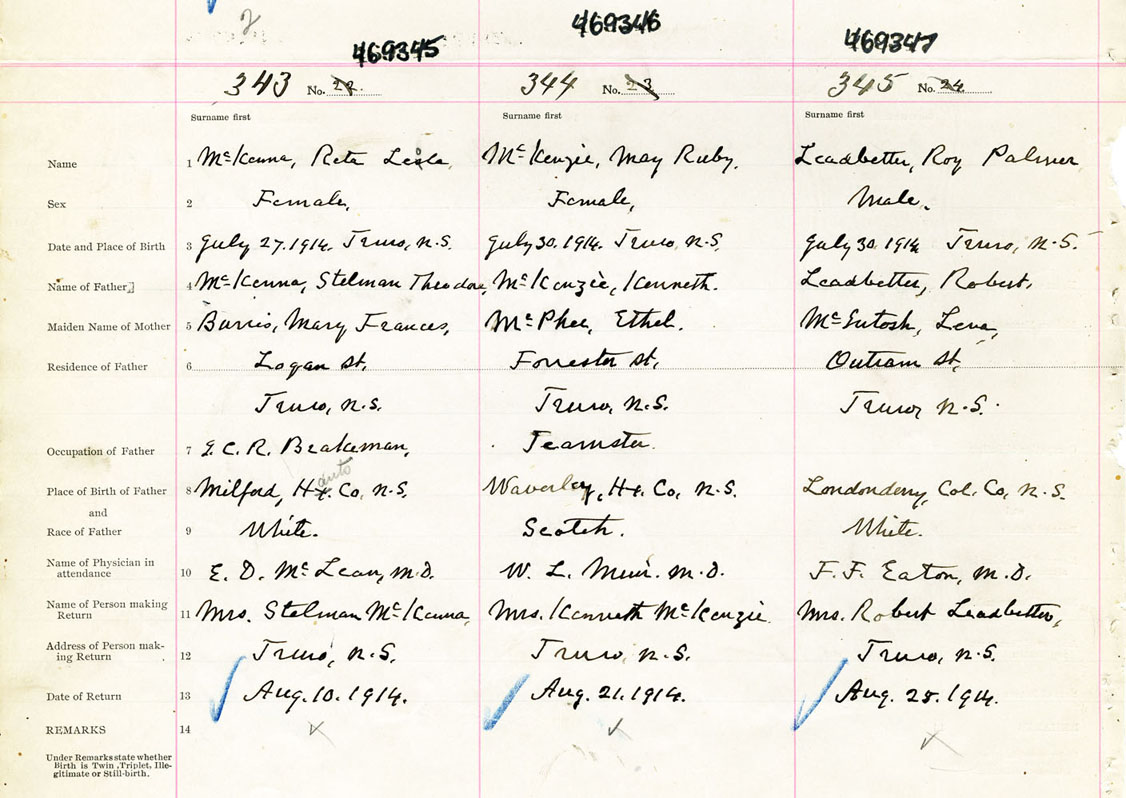 2
469345 469346 469347
343 No. 22. 344 No. 23 345 No. 24
Surname first Surname first Surname first
Name 1 McKenna, Reta Leola, McKenzie, May Ruby. Leadbetter, Roy Palmer
Sex 2 Female, Female, Male.
Date and Place of Birth 3 July 27. 1914. Truro, N.S. July 30. 1914. Truro, N.S. July 30. 1914 Truro, N.S.
Name of Father 4 McKenna, Stelman Theodore, McKenzie, Kenneth. Leadbetter, Robert,
Maiden Name of Mother 5 Burris, Mary Frances, McPhee, Ethel. McIntosh, Lena,
Residence of Father 6 Logan St, Forrester St, Outram St,
Truro, N.S. Truro, N.S. Truro, N.S.
Occupation of Father 7 I. C. R. Brakeman, Teamster.
Place of Birth of Father 8 Milford, Hx. Co, N.S. Waverley, Hx. Co, N.S. Londonderry, Col. Co, N.S.
and
Race of Father 9 White. Scotch. White.
Name of Physician in
attendance 10 E. D. McLean, M.D. W. L. Muir. M.D. F. F. Eaton, M.D.
Name of Person making
Return 11 Mrs. Stelman McKenna, Mrs. Kenneth McKenzie Mrs. Robert Leadbetter,
Address of Person mak-
ing Return 12 Truro, N.S. Truro, N.S. Truro, N.S.
Date of Return 13 Aug. 10. 1914. Aug. 21. 1914. Aug. 25. 1914.
REMARKS 14
Under Remarks state whether
Birth is Twin, Triplet, Ille-
gitimate or Still-birth.